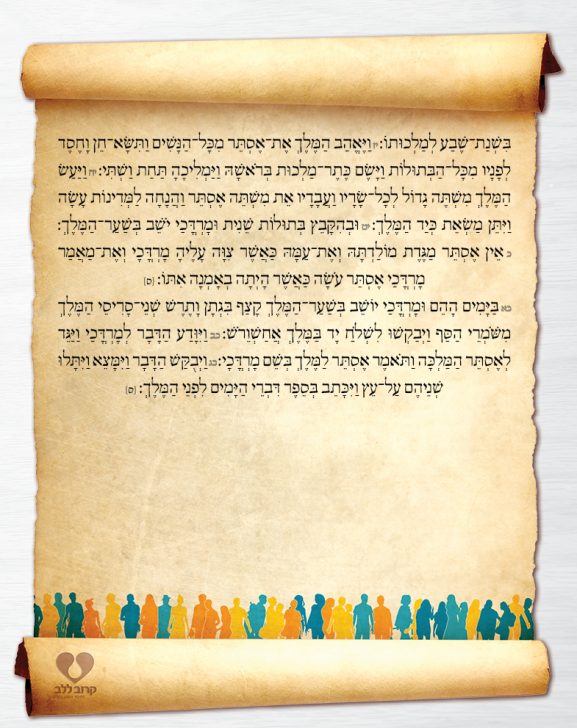 בִּשְׁנַת־שֶׁבַע לְמַלְכוּתוֹ: יז וַיֶּאֱהַב הַמֶּלֶךְ אֶת־אֶסְתֵּר מִכָּל־הַנָּשִׁים וַתִּשָּׂא־חֵן וָחֶסֶד
לְפָנָיו מִכָּל־הַבְּתוּלוֹת וַיָּשֶׂם כֶּתֶר־מַלְכוּת בְּרֹאשָׁהּ וַיַּמְלִיכֶהָ תַּחַת וַשְׁתִּי: יח וַיַּעַשׂ
הַמֶּלֶךְ מִשְׁתֶּה גָדוֹל לְכָל־שָׂרָיו וַעֲבָדָיו אֵת מִשְׁתֵּה אֶסְתֵּר וַהֲנָחָה לַמְּדִינוֹת עָשָׂה
וַיִּתֵּן מַשְׂאֵת כְּיַד הַמֶּלֶךְ: יט וּבְהִקָּבֵץ בְּתוּלוֹת שֵׁנִית וּמָרְדֳּכַי יֹשֵׁב בְּשַׁעַר־הַמֶּלֶךְ:
כ אֵין אֶסְתֵּר מַגֶּדֶת מוֹלַדְתָּהּ וְאֶת־עַמָּהּ כַּאֲשֶׁר צִוָּה עָלֶיהָ מָרְדֳּכָי וְאֶת־מַאֲמַר
מָרְדֳּכַי אֶסְתֵּר עֹשָׂה כַּאֲשֶׁר הָיְתָה בְאָמְנָה אִתּוֹ: (ס)
כא בַּיָּמִים הָהֵם וּמָרְדֳּכַי יוֹשֵׁב בְּשַׁעַר־הַמֶּלֶךְ קָצַף בִּגְתָן וָתֶרֶשׁ שְׁנֵי־סָרִיסֵי הַמֶּלֶךְ
מִשֹּׁמְרֵי הַסַּף וַיְבַקְשׁוּ לִשְׁלֹחַ יָד בַּמֶּלֶךְ אֲחַשְׁוֵרוֹשׁ: כב וַיִּוָּדַע הַדָּבָר לְמָרְדֳּכַי וַיַּגֵּד
לְאֶסְתֵּר הַמַּלְכָּה וַתֹּאמֶר אֶסְתֵּר לַמֶּלֶךְ בְּשֵׁם מָרְדֳּכָי: כג וַיְבֻקַּשׁ הַדָּבָר וַיִּמָּצֵא וַיִּתָּלוּ
שְׁנֵיהֶם עַל־עֵץ וַיִּכָּתֵב בְּסֵפֶר דִּבְרֵי הַיָּמִים לִפְנֵי הַמֶּלֶךְ: (ס)
קרוב ללב